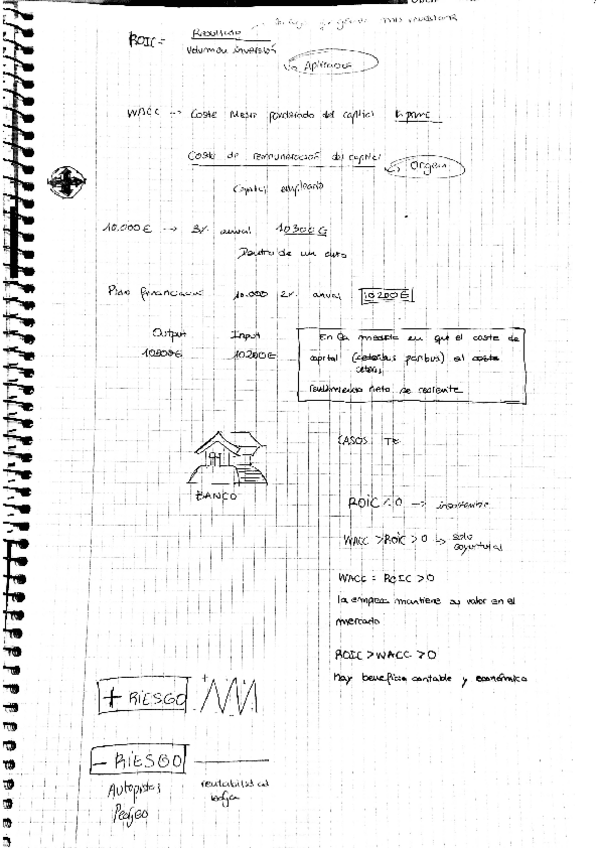 ROIC = Resultado
Volumen inversión
Aplicados
WACC → Coste Medio ponderado del capital
Coste de remuneración del capital
Origen
Capital empleado
10.000 € → 3% anual 10300 €
Dentro de un año
Plan financiación 10.000 2% anual 10200 €
Output Input
10300€ 10200€
En la medida en que el coste de
capital (ceteris paribus) el
rendimiento neto se
BANCO
CASOS
ROIC < 0 →
WACC > ROIC > 0 → solo
coyuntural
WACC = ROIC > 0
la empresa mantiene su valor en el
mercado
ROIC > WACC > 0
Hay beneficio contable y económico
+ RIESGO
- RIESGO
Autopistas
Peajes
rentabilidad